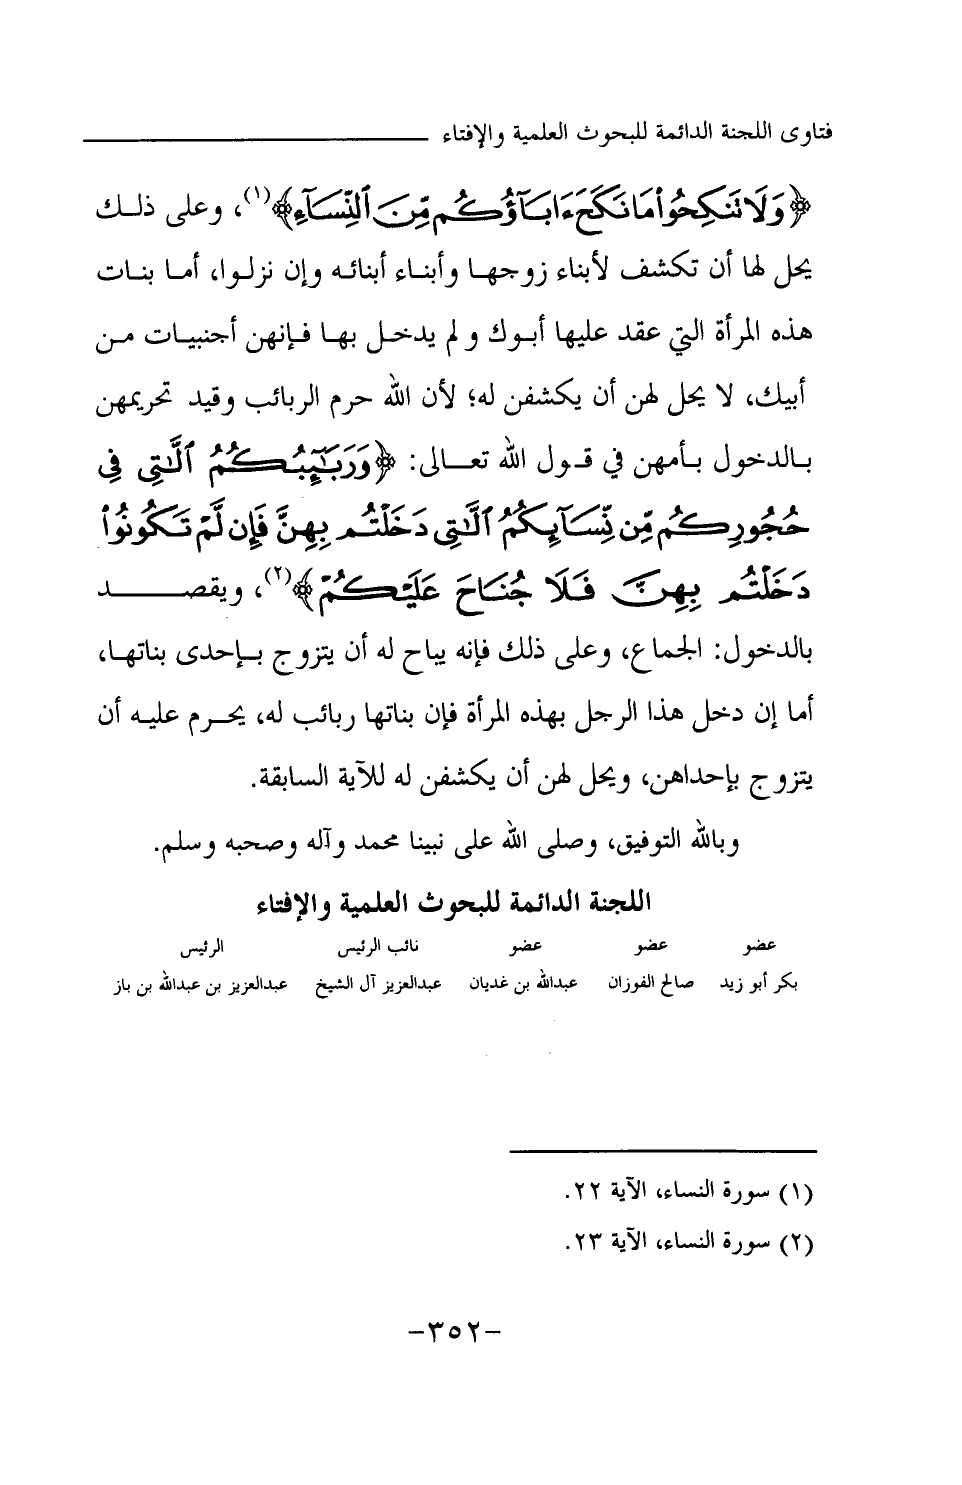 فتاوى اللجنة الدائمة للبحوث العلمية والإفتاء
﴿وَلَا تَنكِحُوا۟ مَا نَكَحَ ءَابَآؤُكُم مِّنَ ٱلنِّسَآءِ﴾(١)، وعلى ذلك
يحل لها أن تكشف لأبناء زوجها وأبناء أبنائه وإن نزلوا، أما بنات
هذه المرأة التي عقد عليها أبوك و لم يدخل بها فإنهن أجنبيات من
أبيك، لا يحل لهن أن يكشفن له؛ لأن الله حرم الربائب وقيد تحريمهن
بالدخول بأمهن في قول الله تعالى: ﴿وَرَبَٰٓئِبُكُمُ ٱلَّٰتِى فِى
حُجُورِكُم مِّن نِّسَآئِكُمُ ٱلَّٰتِى دَخَلْتُم بِهِنَّ فَإِن لَّمْ تَكُونُوا۟
دَخَلْتُم بِهِنَّ فَلَا جُنَاحَ عَلَيْكُمْ﴾(٢)، ويقصد
بالدخول: الجماع، وعلى ذلك فإنه يباح له أن يتزوج بإحدى بناتها،
أما إن دخل هذا الرجل بهذه المرأة فإن بناتها ربائب له، يحرم عليه أن
يتزوج بإحداهن، ويحل لهن أن يكشفن له للآية السابقة.
وبالله التوفيق، وصلى الله على نبينا محمد وآله وصحبه وسلم.
اللجنة الدائمة للبحوث العلمية والإفتاء
عضو عضو عضو نائب الرئيس الرئيس
بكر أبو زيد صالح الفوزان عبدالله بن غديان عبدالعزيز آل الشيخ عبدالعزيز بن عبدالله بن باز
(١) سورة النساء، الآية ٢٢.
(٢) سورة النساء، الآية ٢٣.
-٣٥٢-